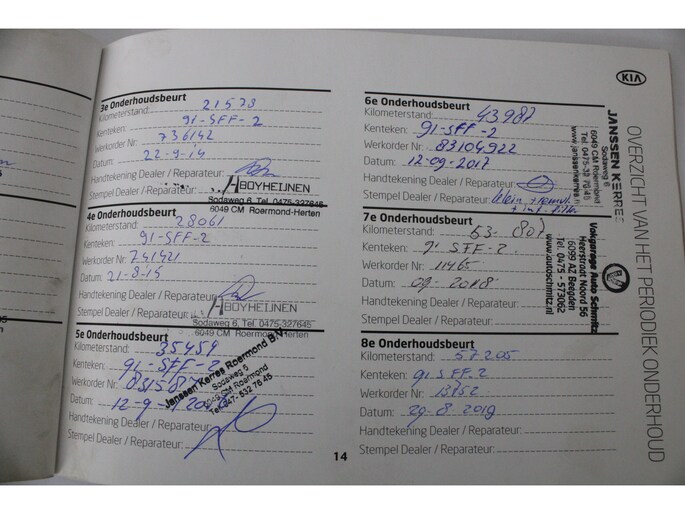 3e Onderhoudsbeurt
Kilometerstand: 21573
Kenteken: 91-SFF-2
Werkorder Nr: 736142
Datum: 22-9-14
Handtekening Dealer / Reparateur:
Stempel Dealer / Reparateur:
A BOYHEIJNEN
Sodaweg 6, Tel. 0475-327645
6049 CM Roermond-Herten
4e Onderhoudsbeurt
Kilometerstand: 28061
Kenteken: 91-SFF-2
Werkorder Nr: 741421
Datum: 21-8-15
Handtekening Dealer / Reparateur:
Stempel Dealer / Reparateur:
A BOYHEIJNEN
Sodaweg 6, Tel. 0475-327645
6049 CM Roermond-Herten
5e Onderhoudsbeurt
Kilometerstand: 35454
Kenteken: 91-SFF-2
Werkorder Nr:
Datum: 12-9-
Handtekening Dealer / Reparateur:
Stempel Dealer / Reparateur:
Janssen Kerres Roermond B.V.
Sodaweg 6
6049 CM Roermond
Tel.
14
6e Onderhoudsbeurt
Kilometerstand: 43987
Kenteken: 91-SFF-2
Werkorder Nr: 83104922
Datum: 12-09-2017
Handtekening Dealer / Reparateur:
Stempel Dealer / Reparateur: klein +
JANSSEN KERRES
Sodaweg 6
6049 CM Roermond
Tel. 0475-32 76 45
www.janssenkerres.nl
7e Onderhoudsbeurt
Kilometerstand: 53.807
Kenteken: 91 SFF-2
Werkorder Nr: 11465
Datum: 2018
Handtekening Dealer / Reparateur:
Stempel Dealer / Reparateur:
Vakgarage Auto Schmitz
Heerstraat Noord 56
6099 AZ Beegden
Tel. 0475 - 573062
www.autoschmitz.nl
8e Onderhoudsbeurt
Kilometerstand: 57205
Kenteken: 91 SFF-2
Werkorder Nr: 13152
Datum: 29-8-2019
Handtekening Dealer / Reparateur:
Stempel Dealer / Reparateur:
KIA
OVERZICHT VAN HET PERIODIEK ONDERHOUD